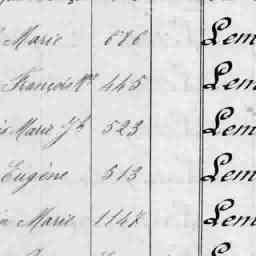 Marie 686 Lem
François Mie 445 Lem
Marie Jh 523 Lem
Eugène 513 Lem
Marie 1147 Lem